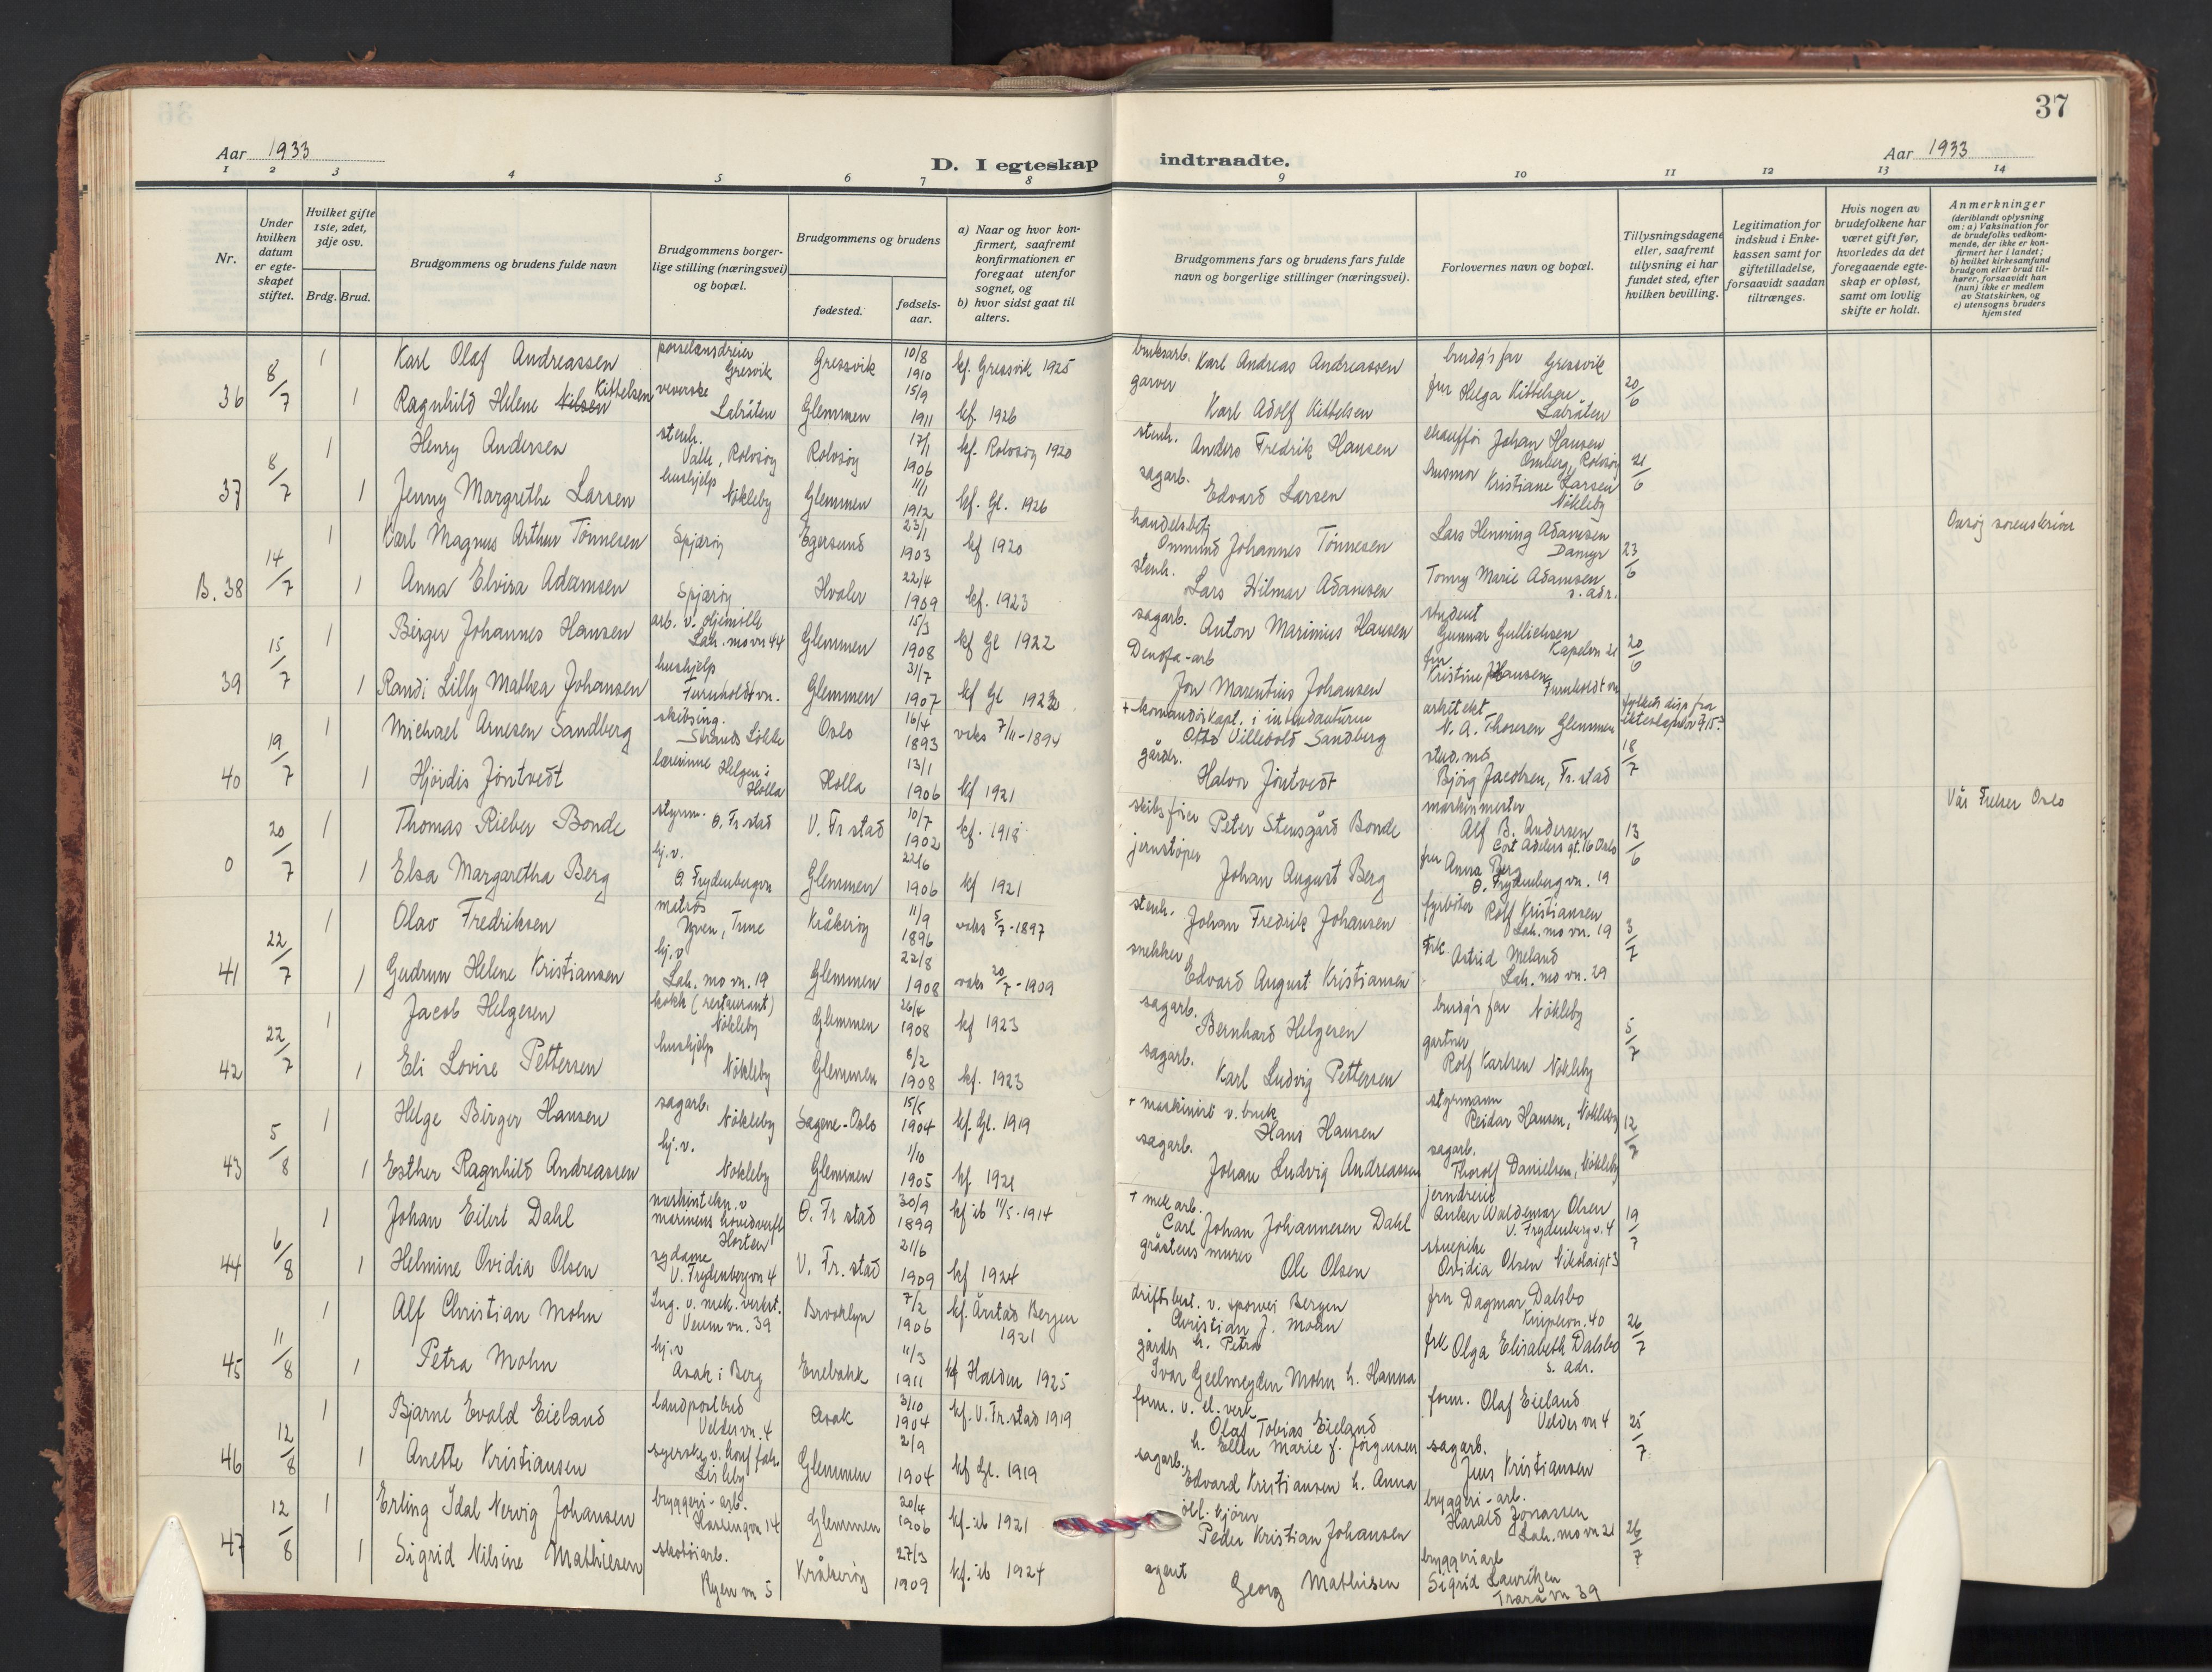 37
Aar 1933
D. I egteskap indtraadte.
Aar 1933
1 2 3 4 5 6 7 8 9 10 11 12 13 14
Nr.
Under hvilken datum er egteskapet stiftet.
Hvilket gifte 1ste, 2det, 3dje osv.
Brdg. Brud.
Brudgommens og brudens fulde navn
Brudgommens borgerlige stilling (næringsvei) og bopæl.
Brudgommens og brudens
fødested.
fødselsaar.
a) Naar og hvor konfirmert, saafremt konfirmationen er foregaat utenfor sognet, og
b) hvor sidst gaat til alters.
Brudgommens fars og brudens fars fulde navn og borgerlige stillinger (næringsvei).
Forlovernes navn og bopæl.
Tillysningsdagene eller, saafremt tillysning ei har fundet sted, efter hvilken bevilling.
Legitimation for indskud i Enkekassen samt for giftetilladelse, forsaavidt saadan tiltrænges.
Hvis nogen av brudefolkene har været gift før, hvorledes da det foregaaende egteskap er opløst, samt om lovlig skifte er holdt.
Anmerkninger (deriblandt oplysning om: a) Vaksination for de brudefolks vedkommende, der ikke er konfirmert her i landet; b) hvilket kirkesamfund brudgom eller brud tilhører, forsaavidt han (hun) ikke er medlem av Statskirken, og c) utensogns bruders hjemsted
36 8/7 1 Karl Olaf Andreassen porselænsdreier Gresvik Gressvik 10/8 1910 kf. Gressvik 1925 bruksarb. Karl Andreas Andreassen brudg's far Gressvik 20/6
1 Ragnhild Helene Nilsen Kittelsen veverske Labråten Glemmen 15/9 1911 kf. 1926 garver Karl Adolf Kittelsen fru Helga Kittelsen Labråten
37 8/7 1 Henry Andersen stenh. Valle, Rolvsøy Rolvsøy 17/1 1906 kf. Rolvsøy 1920 stenh. Anders Fredrik Hansen chauffør Johan Hansen Omberg, Rolvsøy 21/6
1 Jenny Margrethe Larsen hushjelp Nøkleby Glemmen 11/1 1912 kf. Gl. 1926 sagarb. Edvard Larsen husmor Kristiane Larsen Nøkleby
B. 38 14/7 1 Karl Magnus Arthur Tønnesen Spjærøy Egersund 23/1 1903 kf 1920 handelsbetj. Ommund Johannes Tønnesen Lars Henning Adamsen Damyr 23/6 Onsøy sorenskriver
1 Anna Elvira Adamsen Spjærøy Hvaler 22/4 1909 kf. 1923 stenh. Lars Hilmar Adamsen Tonny Marie Adamsen s. adr.
39 15/7 1 Birger Johannes Hansen arb. v. oljemølle Lah. mo vn 44 Glemmen 15/3 1908 kf Gl 1922 sagarb. Anton Marinius Hansen student Gunnar Gulliksen Kapelvn 21 20/6
1 Randi Lilly Mathea Johansen hushjelp Furuholdt vn. Glemmen 31/7 1907 kf Gl 1922 Denofa-arb Jon Marentius Johansen fru Kristine Hansen Furuholdt vn
40 19/7 1 Michael Arnesen Sandberg skibsing. Strands Løkke Oslo 16/4 1893 vaks 7/11-1894 + komandørkapt. i intendanturen Otto Villebold Sandberg arkitekt N. A. Thoresen Glemmen fylkets disp fra
1 Hjørdis Jøntvedt lærerinne Helgen i Holla Holla 13/1 1906 kf 1921 gårdbr. Halvor Jøntvedt stud. med. Bjørg Jacobsen, Fr. stad 18/7
0 20/7 1 Thomas Rieber Bonde styrm. Ø. Fr stad V. Fr stad 10/7 1902 kf. 1918 skibsfører Peter Stensgård Bonde maskinmester Alf B. Andersen Cort Adelers gt. 16 Oslo 13/6 Vår Frelser Oslo
1 Elsa Margaretha Berg hj. v. Ø. Frydenbergvn Glemmen 22/6 1906 kf 1921 jernstøper Johan August Berg fru Anna Berg Ø. Frydenberg vn. 19
41 22/7 1 Olav Fredriksen matros Yven, Tune Kråkerøy 11/9 1896 vaks 5/7-1897 stenh. Johan Fredrik Johansen fyrbøter Rolf Kristiansen Lah. mo vn. 19 3/7
1 Gudrun Helene Kristiansen hj. v Lah. mo vn. 19 Glemmen 22/8 1908 vaks 20/7-1909 snekker Edvard August Kristiansen frk Astrid Meland Lah. mo vn. 29
42 22/7 1 Jacob Helgesen kokk (restaurant) Nøkleby Glemmen 26/4 1908 kf 1923 sagarb. Bernhard Helgesen brudg's far Nøkleby 5/7
1 Eli Lovise Pettersen hushjelp Nøkleby Glemmen 8/2 1908 kf. 1923 sagarb. Karl Ludvig Pettersen gartner Rolf Karlsen Nøkleby
43 5/8 1 Helge Birger Hansen sagarb. Nøkleby Sagene-Oslo 15/5 1904 kf. Gl. 1919 + maskinist v. bruk Hans Hansen styrmann Reidar Hansen, Nøkleby 12/7
1 Esther Ragnhild Andreassen hj. v. Nøkleby Glemmen 1/10 1905 kf 1921 sagarb. Johan Ludvig Andreassen sagarb. Thorolf Danielsen, Nøkleby
44 6/8 1 Johan Eilert Dahl maskintekn. v marinens hovedverft Horten Ø. Fr stad 30/9 1899 kf ib 11/5-1914 + mek arb. Carl Johan Johannesen Dahl jerndreier Anker Waldemar Olsen V. Frydenberg v. 4 19/7
1 Helmine Ovidia Olsen sydame V. Frydenbergvn 4 V. Fr. stad 21/6 1909 kf 1924 gråstens murer Ole Olsen stuepike Ovidia Olsen Nikolaigt 3
45 11/8 1 Alf Christian Mohn Ing. v. mek. verkst. Veum vn. 39 Brooklyn 7/2 1906 kf. Årstad Bergen 1921 driftsbest. v. sporvei Bergen Christian J. Mohn h. Petra fru Dagmar Dalsbo 40 26/7
1 Petra Mohn hj. v Asak i Berg Enebakk 11/3 1911 kf Halden 1925 gårdbr Ivar Geelmeyden Mohn h. Hanna frk Olga Elisabeth Dalsbo s. adr.
46 12/8 1 Bjarne Evald Eieland landpostbud Veldes vn. 4 Asak 3/10 1904 kf. V. Fr. stad 1919 form. v. el. verk Olaf Tobias Eieland h. Ellen Marie f. Jørgensen form. Olaf Eieland Veldes vn 4 25/7
1 Anette Kristiansen syerske Lisleby Glemmen 2/9 1904 kf Gl. 1919 sagarb. Edvard Kristiansen h. Anna sagarb. Jens Kristiansen
47 12/8 1 Erling Idal Nervig Johansen bryggeri-arb. 14 Glemmen 20/4 1906 kf. ib 1921 øll. kjører Peder Kristian Johansen bryggeri-arb. Harald Jonassen Lah. mo vn 21 26/7
1 Sigrid Nilsine Mathiesen skotøiarb. Ryen vn 5 Kråkerøy 27/3 1909 kf. ib 1924 agent Georg Mathisen bryggeriarb Sigrid Lauritzen Trara vn 39